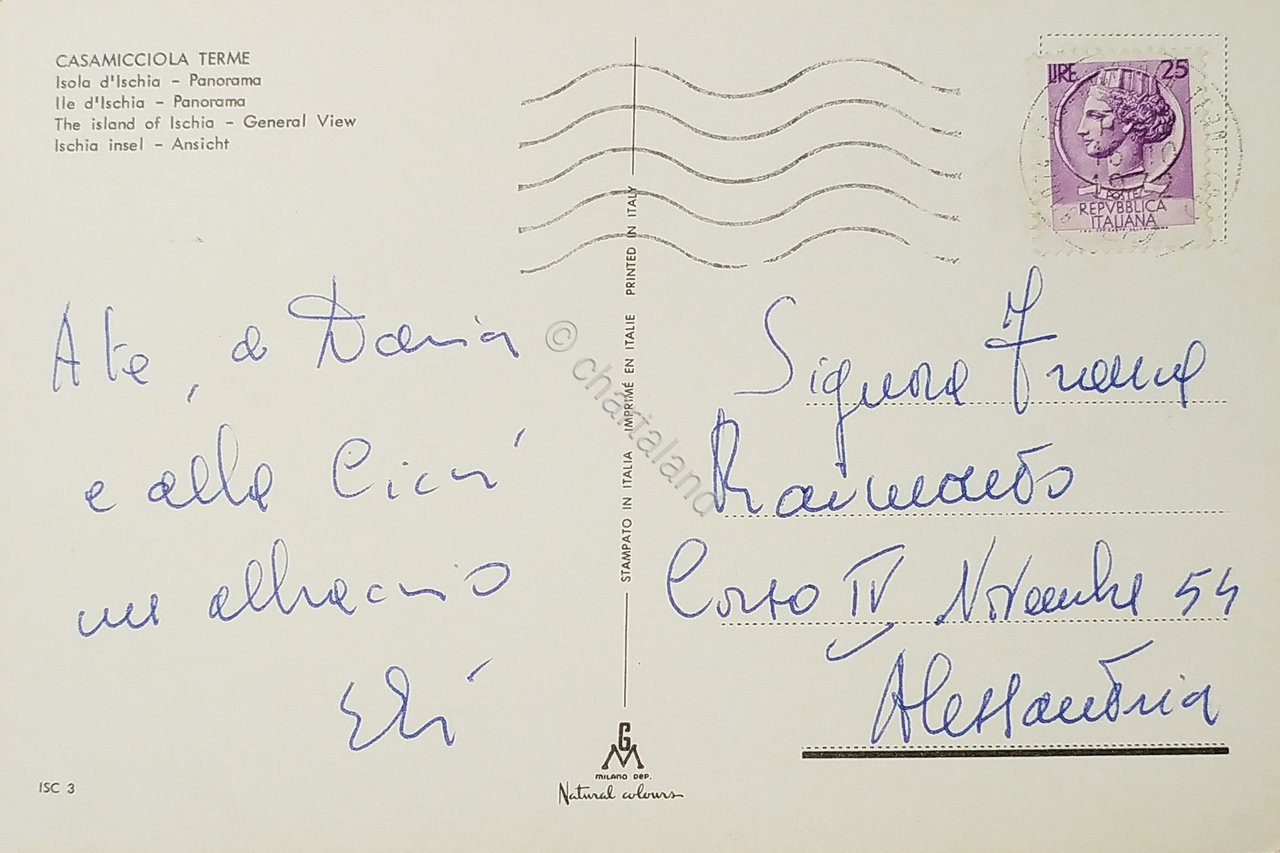 CASAMICCIOLA TERME
Isola d'Ischia - Panorama
Ile d'Ischia - Panorama
The island of Ischia - General View
Ischia insel - Ansicht
LIRE 25
POSTE
REPVBBLICA
ITALIANA
A te, a Daria
e alla Cicci
un abbraccio
Eli
Signora Franca
Raimondo
Corso IV Novembre 54
Alessandria
STAMPATO IN ITALIA IMPRIMÉ EN ITALIE PRINTED IN ITALY
© chartaland
G M
MILANO DEP.
Natural colours
ISC 3